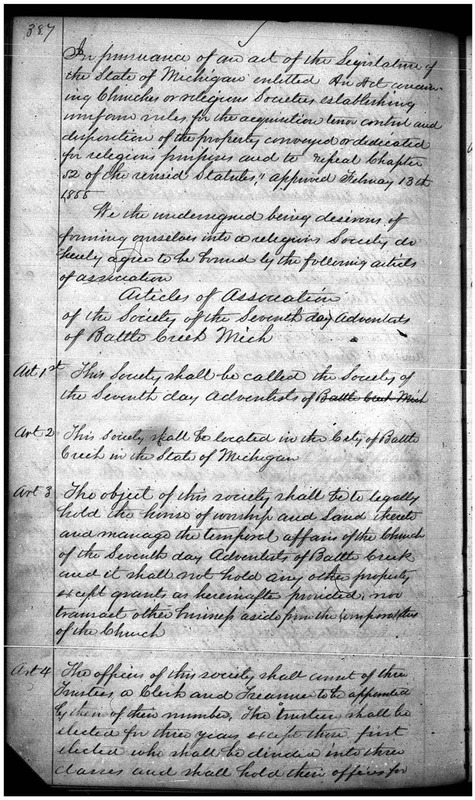 387
In pursuance of an act of the Legislature of
the State of Michigan entitled "An Act concern-
ing Churches or religious Societies establishing
uniform rules for the acquisition tenor control and
disposition of the property conveyed or dedicated
for religious purposes and to repeal Chapter
52 of the revised Statutes," approved February 13th
1855
We the undersigned being desirous of
forming ourselves into a religious Society do
hereby agree to be bound by the following articles
of association
Articles of Association
of the Society of the Seventh day Adventists
of Battle Creek Mich
Art 1st This Society shall be called the Society of
the Seventh day Adventists of Battle Creek Mich
Art 2 This Society shall be located in the City of Battle
Creek in the State of Michigan
Art 3 The object of this society shall be to legally
hold the house of worship and land thereto
and manage the temporal affairs of the Church
of the Seventh day Adventists of Battle Creek
and it shall not hold any other property
except grants as hereinafter provided, nor
transact other business aside from the temporalities
of the Church
Art 4 The offices of this society shall consist of three
Trustees, a Clerk and Treasurer to be appointed
by them of their number. The trustees shall be
elected for three years except those first
elected who shall be divided into three
classes and shall hold their offices for